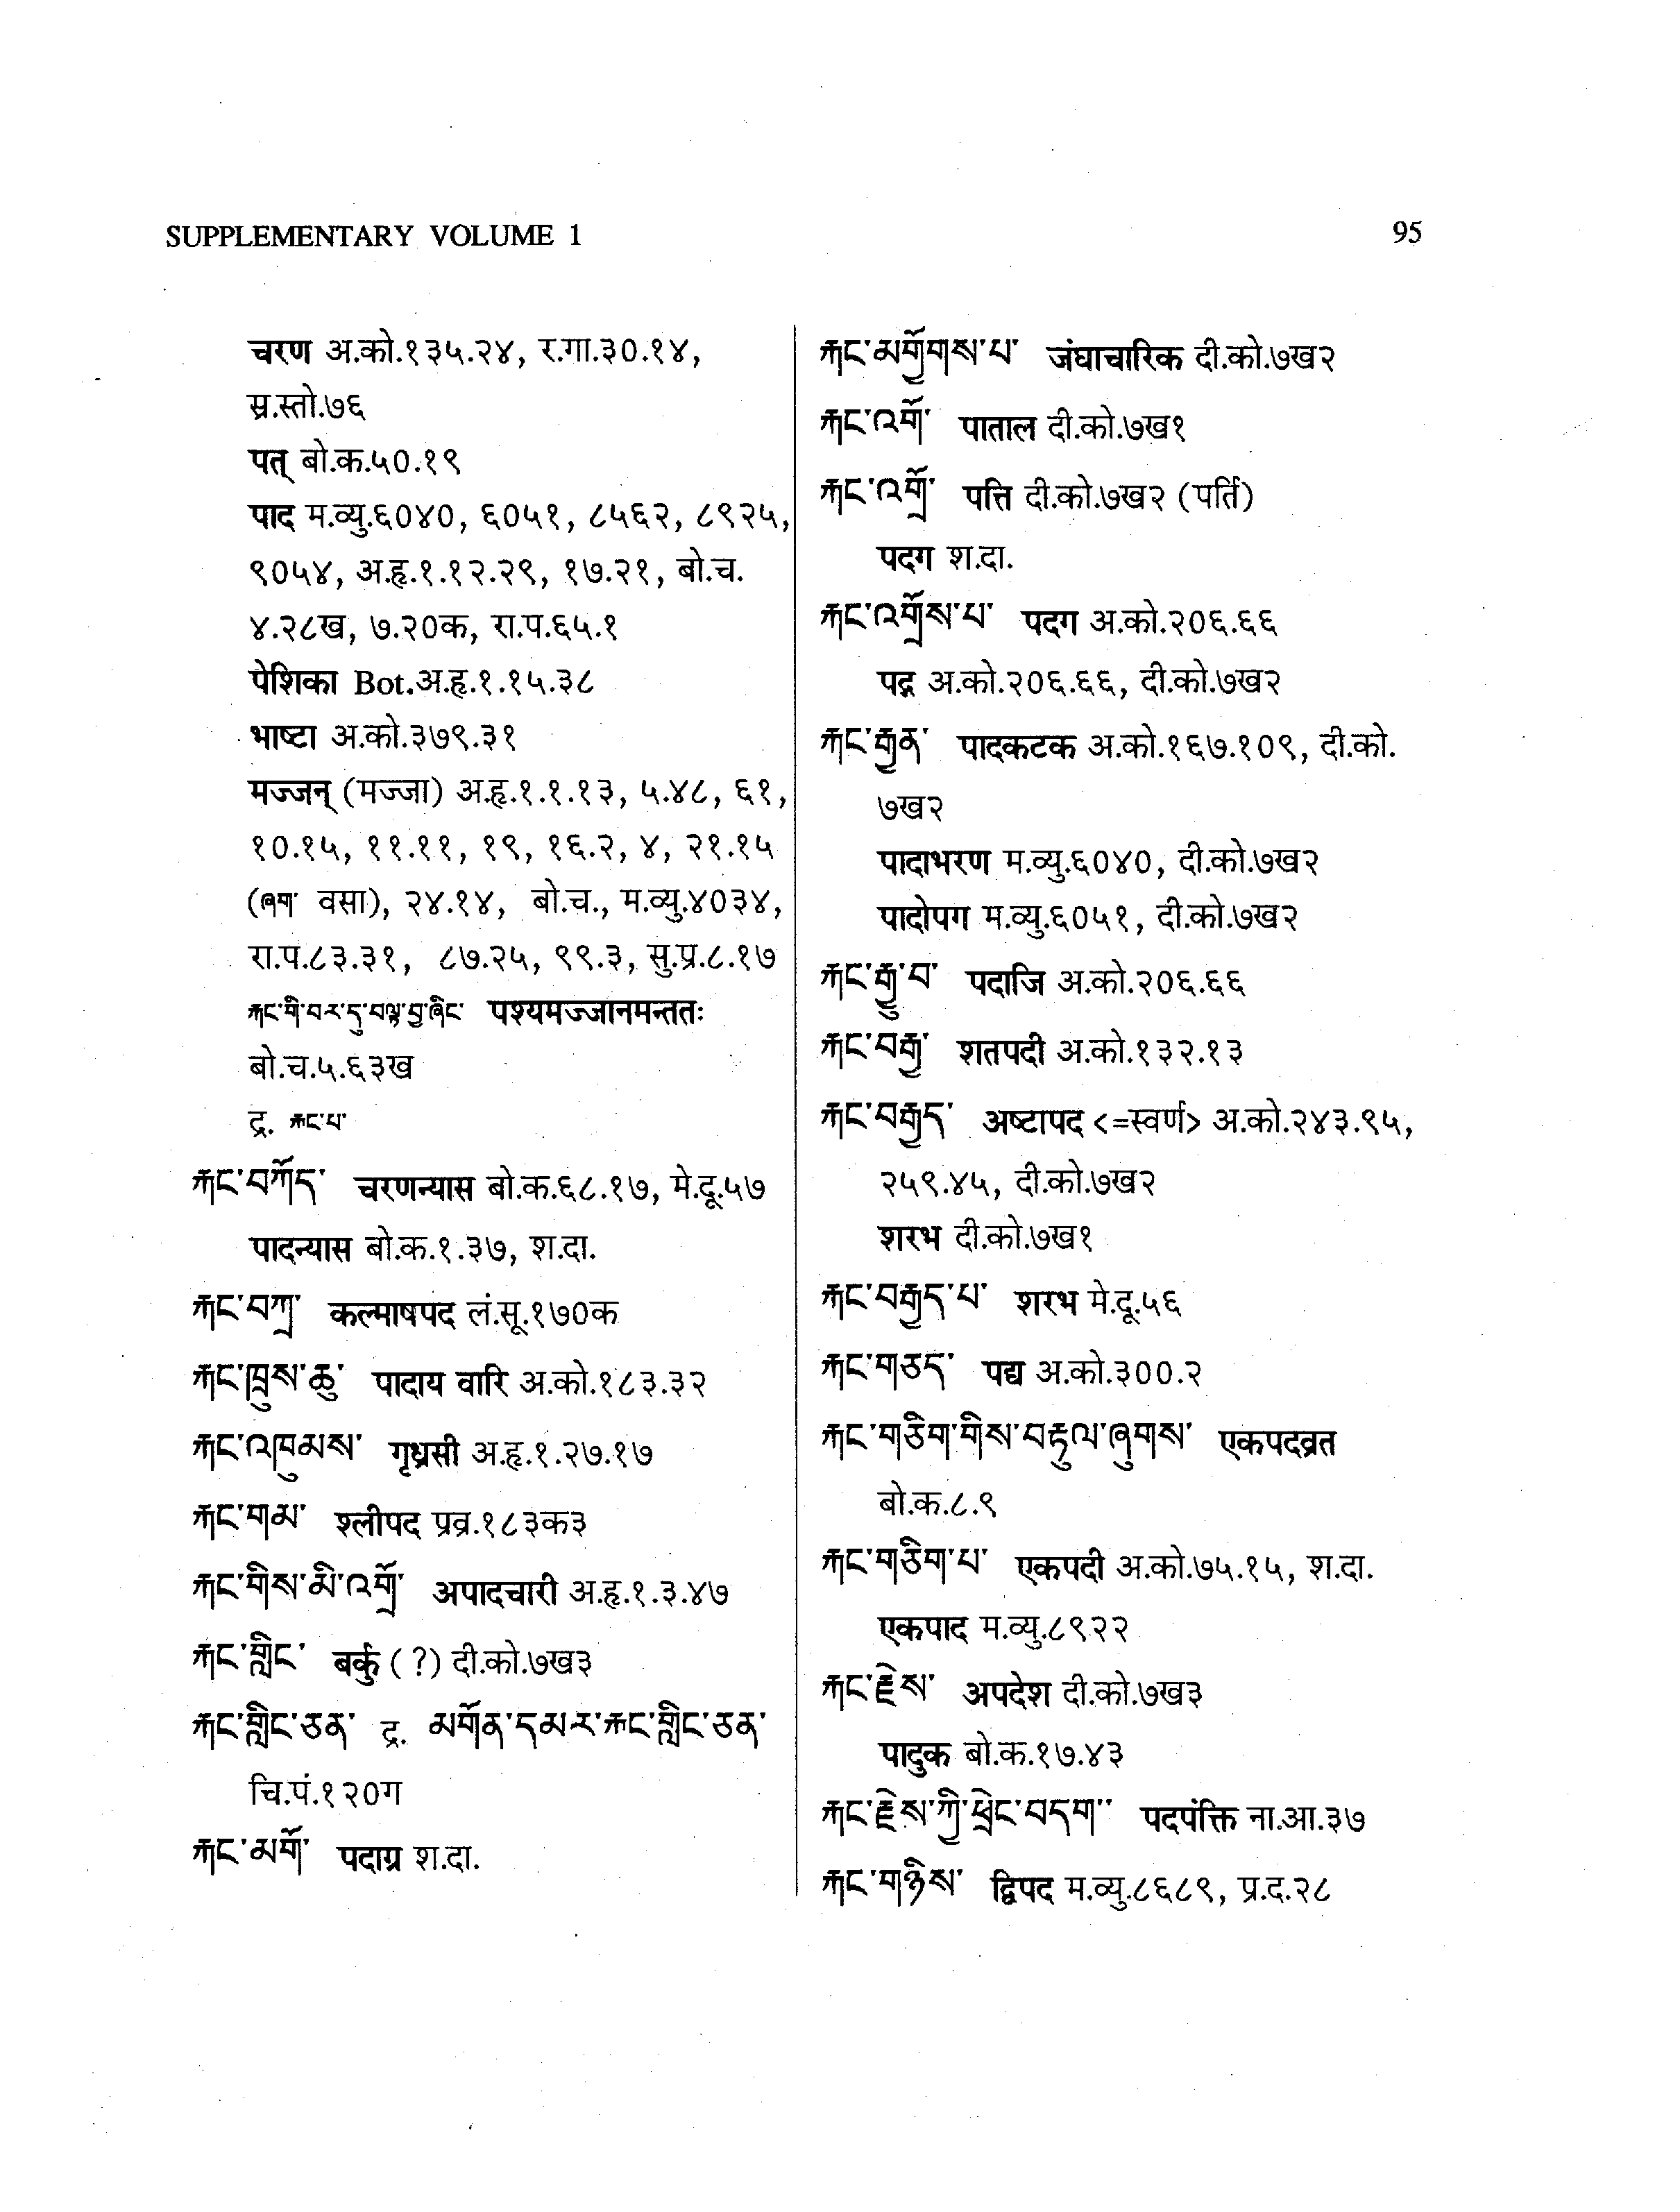 SUPPLEMENTARY VOLUME 1
95
चरण अ.को.१३५.२४, र.गा.३०.१४,
स्र.स्तो.७६
पत् बो.क.५०.१९
पाद म.व्यु.६०४०, ६०५१, ८५६२, ८९२५,
९०५४, अ.हृ.१.१२.२९, १७.२१, बो.च.
४.२८ख, ७.२०क, रा.प.६५.१
पेशिका Bot.अ.हृ.१.१५.३८
भाष्टा अ.को.३७९.३१
मज्जन् (मज्जा) अ.हृ.१.१.१३, ५.४८, ६१,
१०.१५, ११.११, १९, १६.२, ४, २१.१५
(ཞག་ वसा), २४.१४, बो.च., म.व्यु.४०३४,
रा.प.८३.३१, ८७.२५, ९९.३, सु.प्र.८.१७
རྐང་གི་བར་དུ་བལྟ་བྱ་ཞིང་ पश्यमज्जानमन्ततः
बो.च.५.६३ख
द्र. རྐང་པ་
རྐང་བཀོད་ चरणन्यास बो.क.६८.१७, मे.दू.५७
पादन्यास बो.क.१.३७, श.दा.
རྐང་བཀྲ་ कल्माषपद लं.सू.१७०क
རྐང་ཁྲུས་ཆུ་ पादाय वारि अ.को.१८३.३२
རྐང་འཁུམས་ गृध्रसी अ.हृ.१.२७.१७
རྐང་གམ་ श्लीपद प्रव्र.१८३क३
རྐང་གིས་མི་འགྲོ་ अपादचारी अ.हृ.१.३.४७
རྐང་གླིང་ बर्कु (?) दी.को.७ख३
རྐང་གླིང་ཅན་ द्र. མགོན་དམར་རྐང་གླིང་ཅན་
चि.पं.१२०ग
རྐང་མགོ་ पदाग्र श.दा.
རྐང་མགྱོགས་པ་ जंघाचारिक दी.को.७ख२
རྐང་འགོ་ पाताल दी.को.७ख१
རྐང་འགྲོ་ पत्ति दी.को.७ख२ (पर्ति)
पदग श.दा.
རྐང་འགྲོས་པ་ पदग अ.को.२०६.६६
पद्ग अ.को.२०६.६६, दी.को.७ख२
རྐང་རྒྱན་ पादकटक अ.को.१६७.१०९, दी.को.
७ख२
पादाभरण म.व्यु.६०४०, दी.को.७ख२
पादोपग म.व्यु.६०५१, दी.को.७ख२
རྐང་རྒྱུ་བ་ पदाजि अ.को.२०६.६६
རྐང་བརྒྱ་ शतपदी अ.को.१३२.१३
རྐང་བརྒྱད་ अष्टापद <=स्वर्ण> अ.को.२४३.९५,
२५९.४५, दी.को.७ख२
शरभ दी.को.७ख१
རྐང་བརྒྱད་པ་ शरभ मे.दू.५६
རྐང་གཅད་ पद्य अ.को.३००.२
རྐང་གཅིག་གིས་བརྟུལ་ཞུགས་ एकपदव्रत
बो.क.८.९
རྐང་གཅིག་པ་ एकपदी अ.को.७५.१५, श.दा.
एकपाद म.व्यु.८९२२
རྐང་རྗེས་ अपदेश दी.को.७ख३
पादुक बो.क.१७.४३
རྐང་རྗེས་ཀྱི་ཕྲེང་བདག་་ पदपंक्ति ना.आ.३७
རྐང་གཉིས་ द्विपद म.व्यु.८६८९, प्र.द.२८